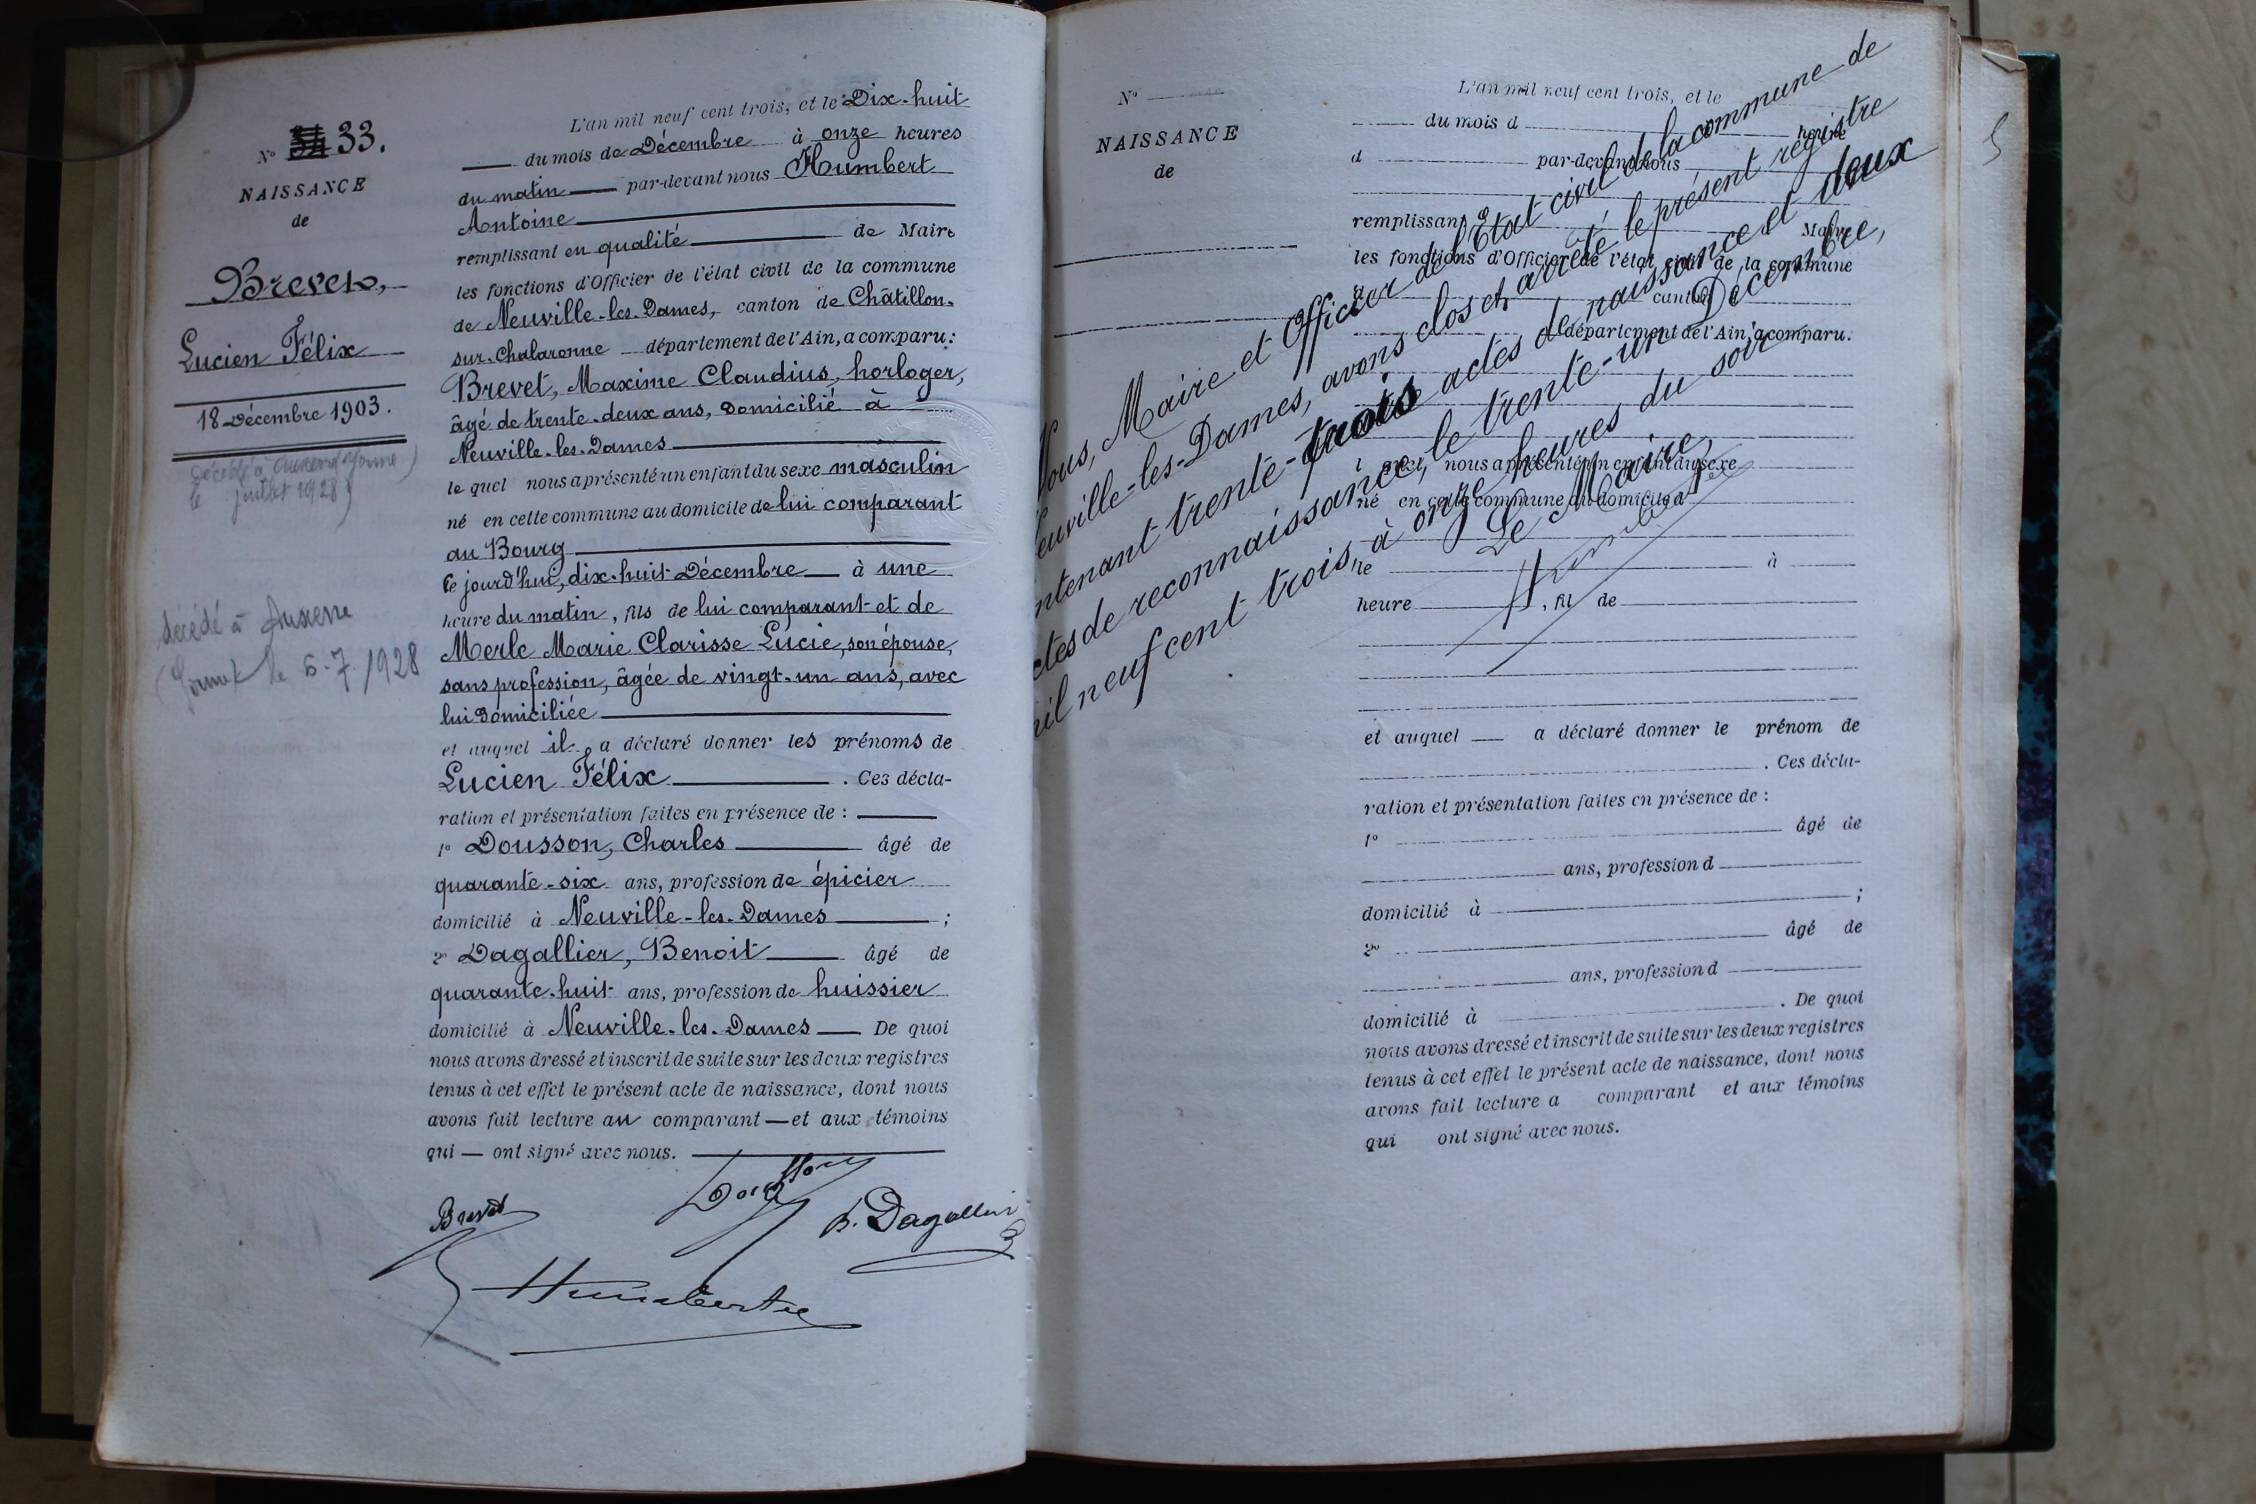 N° 33.
NAISSANCE
de
Brevet,
Lucien Félix
18 Décembre 1903.
Décédé à Auxerre (Yonne)
le juillet 1928)
décédé à Auxerre
(Yonne) le 6-7 1928
L'an mil neuf cent trois, et le Dix-huit
du mois de Décembre à onze heures
du matin par-devant nous Humbert
Antoine
remplissant en qualité de Maire
les fonctions d'Officier de l'état civil de la commune
de Neuville-les-Dames, canton de Châtillon-
sur-Chalaronne département de l'Ain, a comparu:
Brevet, Maxime Claudius, horloger,
âgé de trente-deux ans, domicilié à
Neuville-les-Dames
le quel nous a présenté un enfant du sexe masculin
né en cette commune au domicile de lui comparant
au Bourg
ce jourd'hui, dix-huit Décembre à une
heure du matin, fils de lui comparant et de
Merle Marie Clarisse Lucie, son épouse,
sans profession, âgée de vingt-un ans, avec
lui domiciliée
et auquel il a déclaré donner les prénoms de
Lucien Félix . Ces décla-
ration et présentation faites en présence de :
1° Dousson, Charles âgé de
quarante-six ans, profession de épicier
domicilié à Neuville-les-Dames ;
2° Dagallier, Benoit âgé de
quarante-huit ans, profession de huissier
domicilié à Neuville-les-Dames De quoi
nous avons dressé et inscrit de suite sur les deux registres
tenus à cet effet le présent acte de naissance, dont nous
avons fait lecture au comparant — et aux témoins
qui — ont signé avec nous.
Brevet
Dousson
B. Dagallier
Humbert
N°
NAISSANCE
de
L'an mil neuf cent trois, et le
du mois d heure
d par-devant nous
remplissant Maire
les fonctions d'Officier de l'état civil de la commune
d canton
département de l'Ain, a comparu.
l quel nous a présenté un enfant du sexe
né en cette commune au domicile d
le à
heure , fil de
et auquel a déclaré donner le prénom de
. Ces décla-
ration et présentation faites en présence de :
1° âgé de
ans, profession d
domicilié à ;
2° âgé de
ans, profession d
domicilié à . De quoi
nous avons dressé et inscrit de suite sur les deux registres
tenus à cet effet le présent acte de naissance, dont nous
avons fait lecture a comparant et aux témoins
qui ont signé avec nous.
Nous, Maire et Officier de l'Etat civil de la commune de
Neuville-les-Dames, avons clos et arrêté le présent registre
contenant trente-trois actes de naissance et deux
actes de reconnaissance, le trente-un Décembre,
mil neuf cent trois, à onze heures du soir
Le Maire,
Humbert